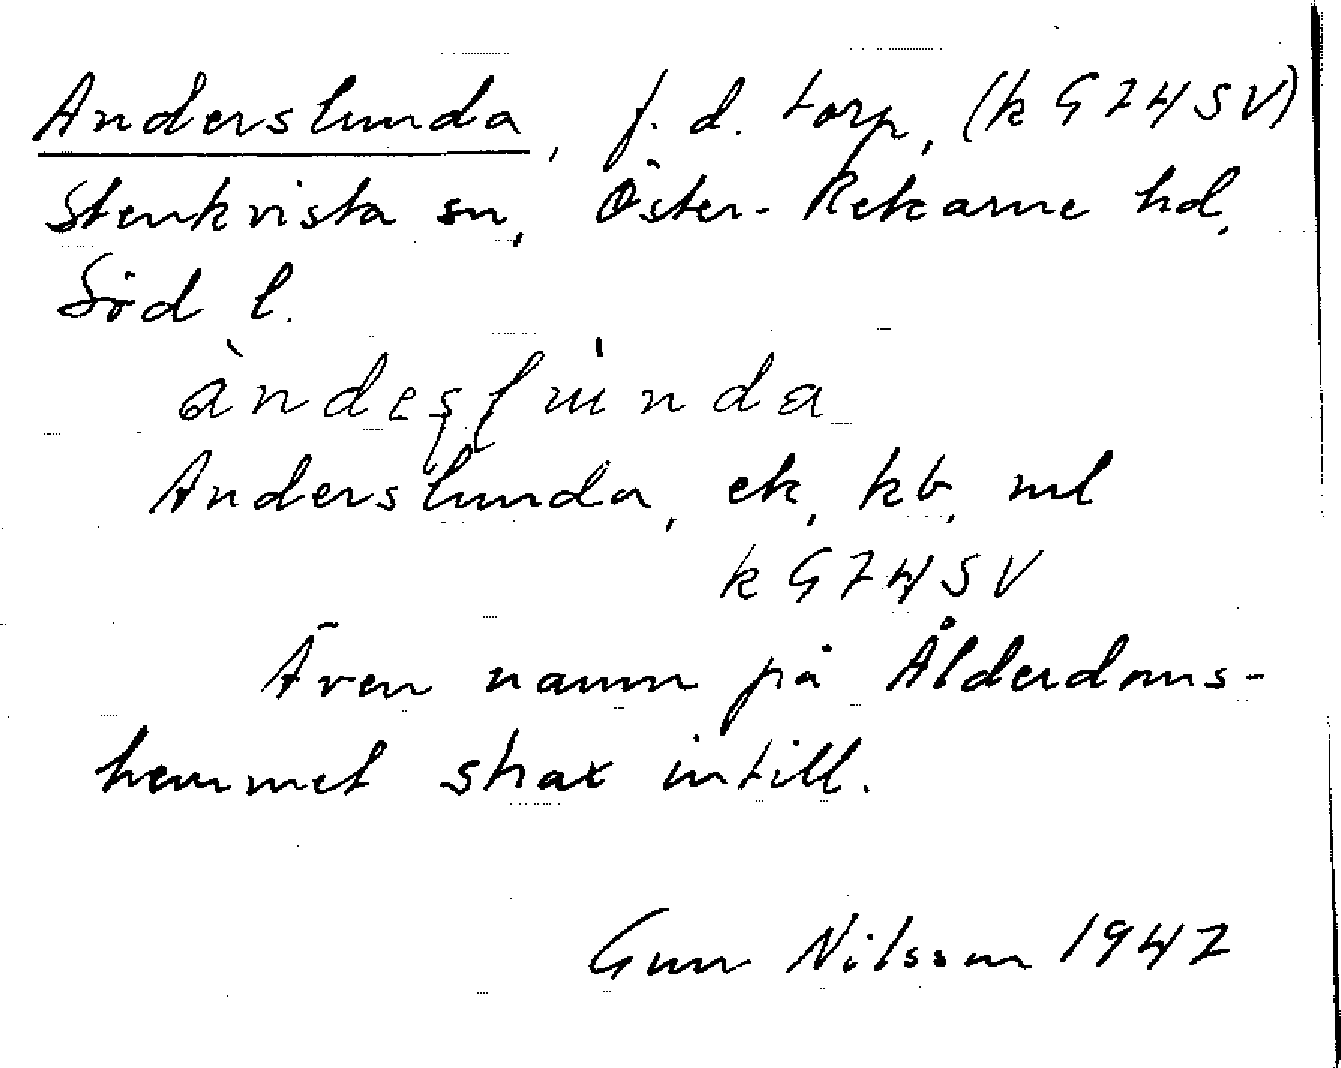 Anderslunda, f. d. torp, (k G74SV)
Stenkvista sn, Öster-Rekarne hd,
Söd l.
Anderslunda, ek, kb, ml
k G74SV
Även namn på Ålderdoms-
hemmet strax intill.
Gun Nilsson 1947